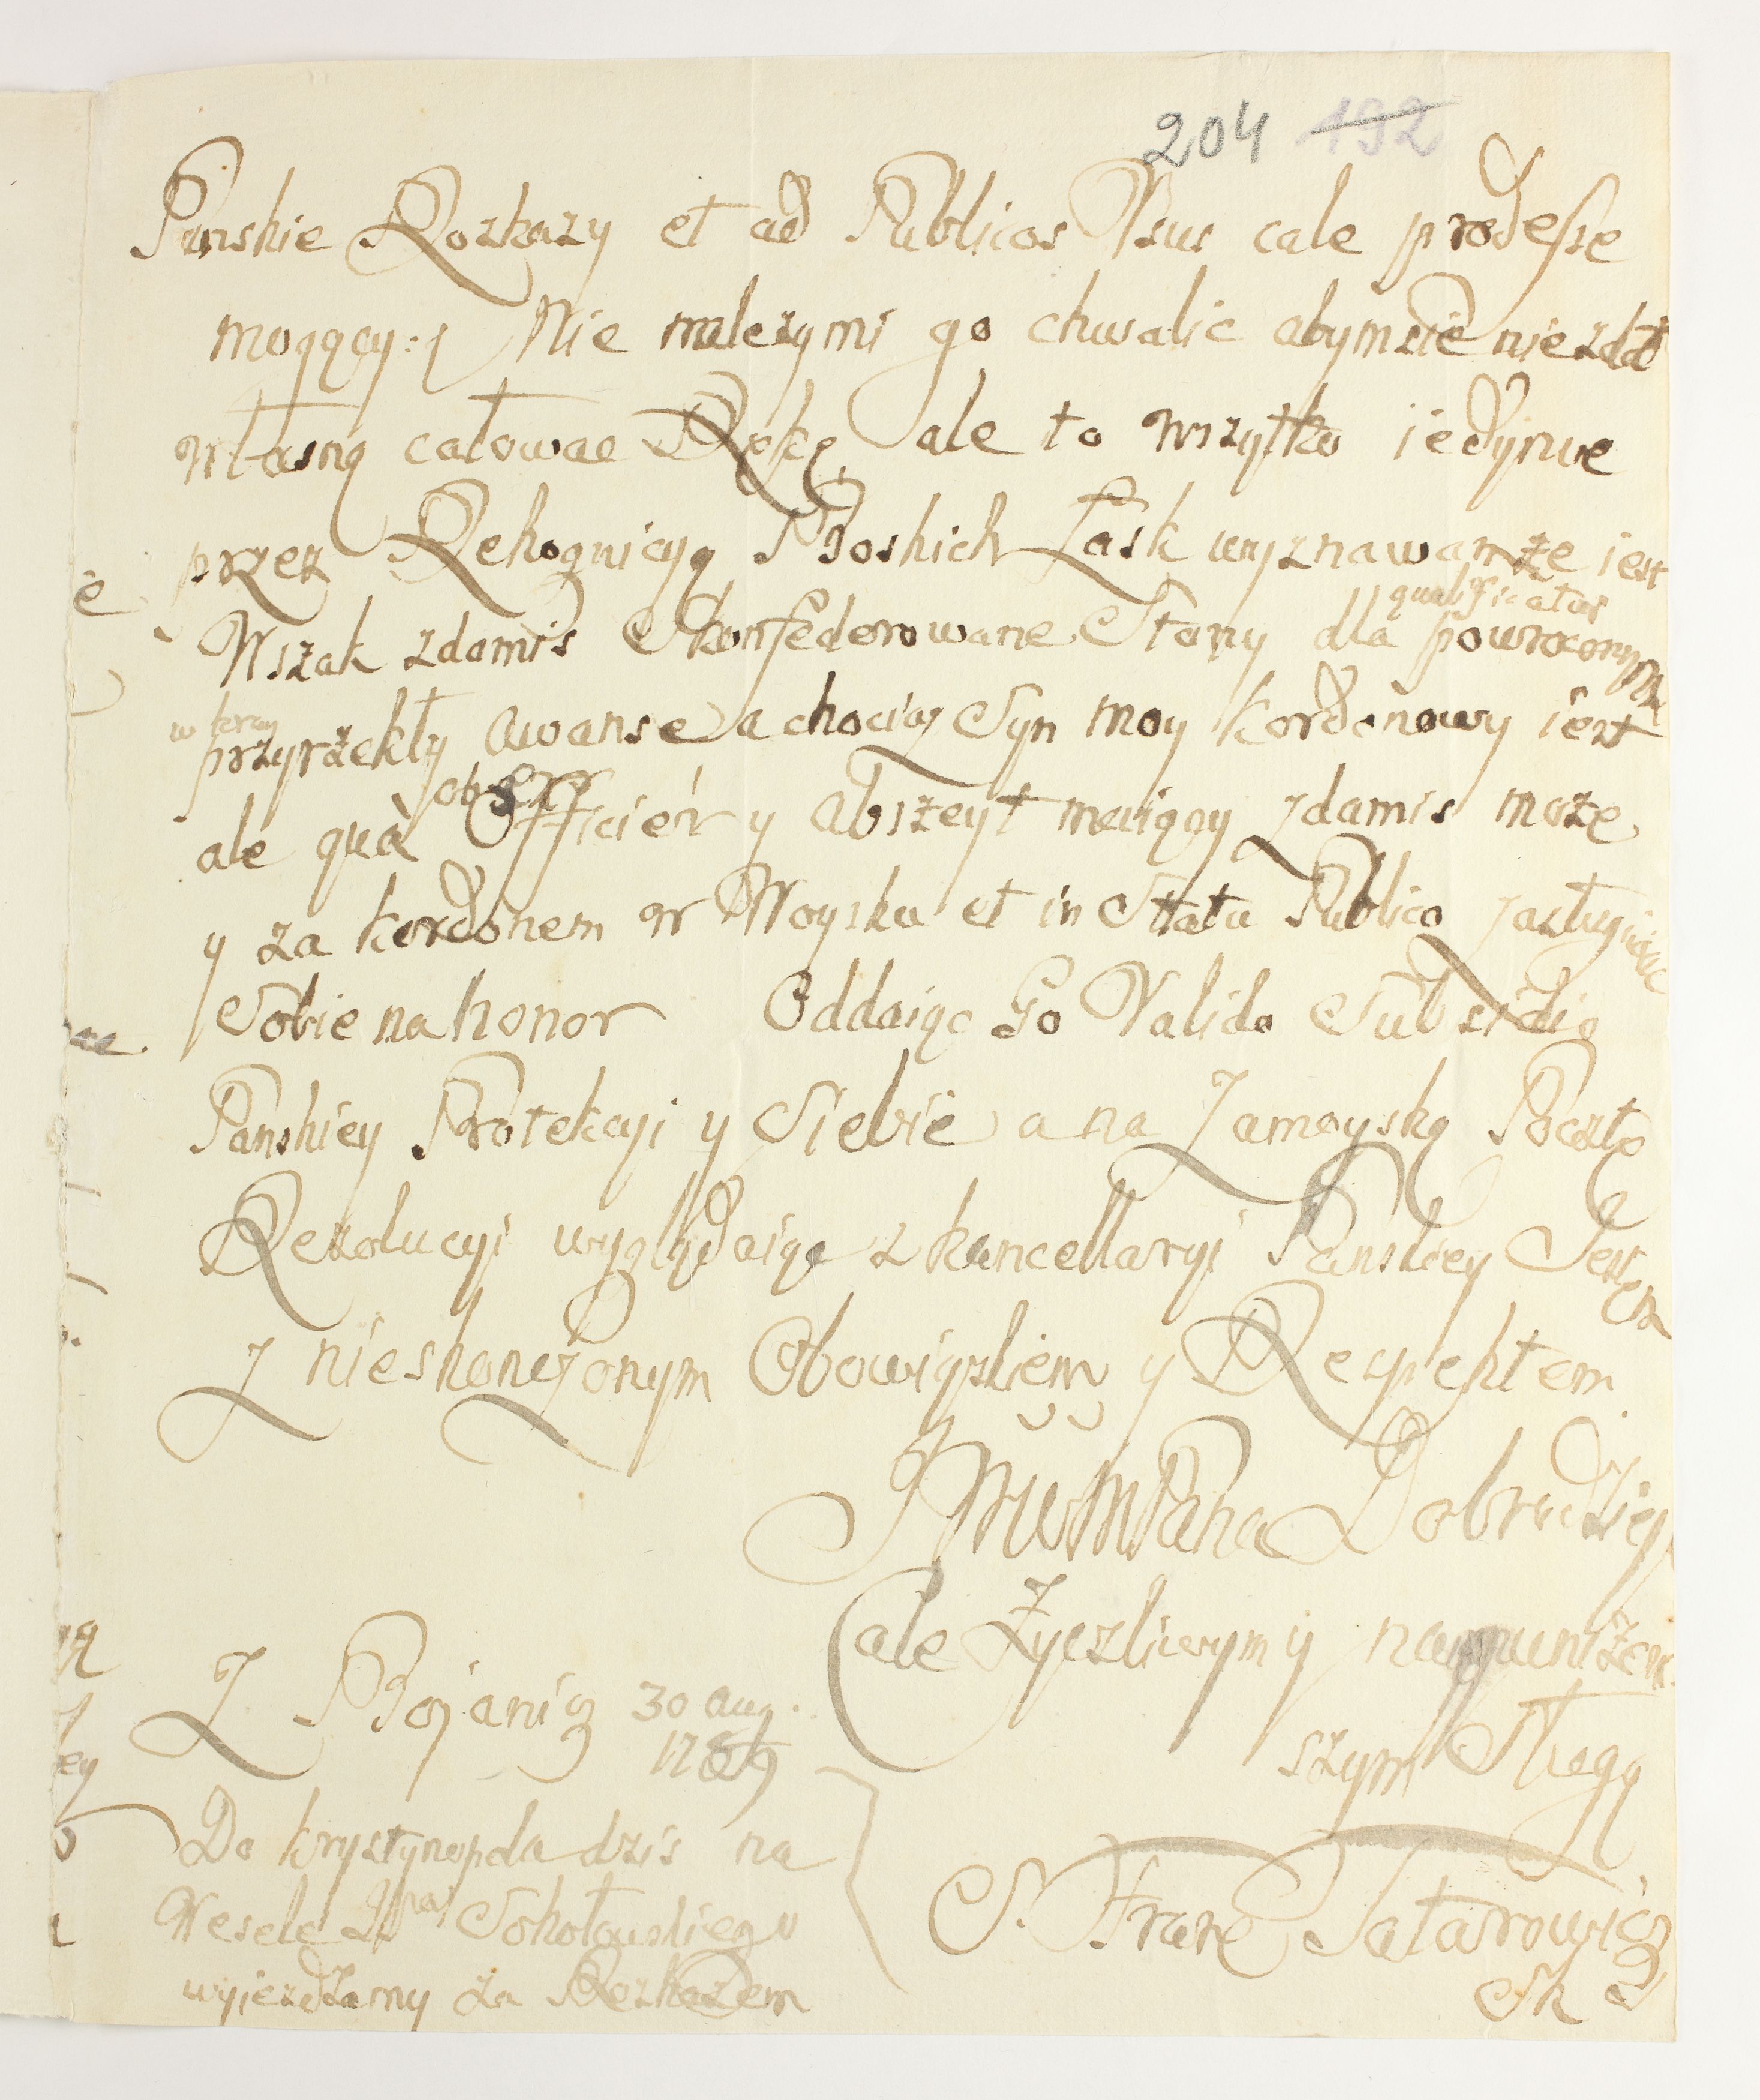 204 192
Panskie Rozkazy et ad Publicos Usus cale prodesse
mogący :/ Nie należy mi go chwalic abym sie nie zdał
własną całowac Rękę, ale to wszytko iedynie
przez Rekognicyą Boskich Łask wyznawam że iest
qualificatus
Wszak zdamis Skonfederowane Stany dla powroconych
w kray
przyrzekły awanse a chociaz Syn moy kordonowy iest
ale quà Officiér y abszeyt maiący zdamis może
y za kordonem w Woysku et in Statu Publico zasługiwac
Sobie na honor Oddaiąc Go Valido Subsidio
Panskiey Protekcyi y Siebie a na Zamoyską Pocztę
Rezolucyi wyglądaiąc z kancellaryi Panskiey Jestem
Z nieskonczonym Obowiązkiem y Respektem
JWWMPana Dobrodzieja
Cale Życzliwym y nayuniżen
szym Sługą
Z Bojanic 30 aug.
1789
Do krystynopola dzis na
Wesele Sokołowskiego
wyjezdzamy za Rozkazem
S. Franc Tatarowicz